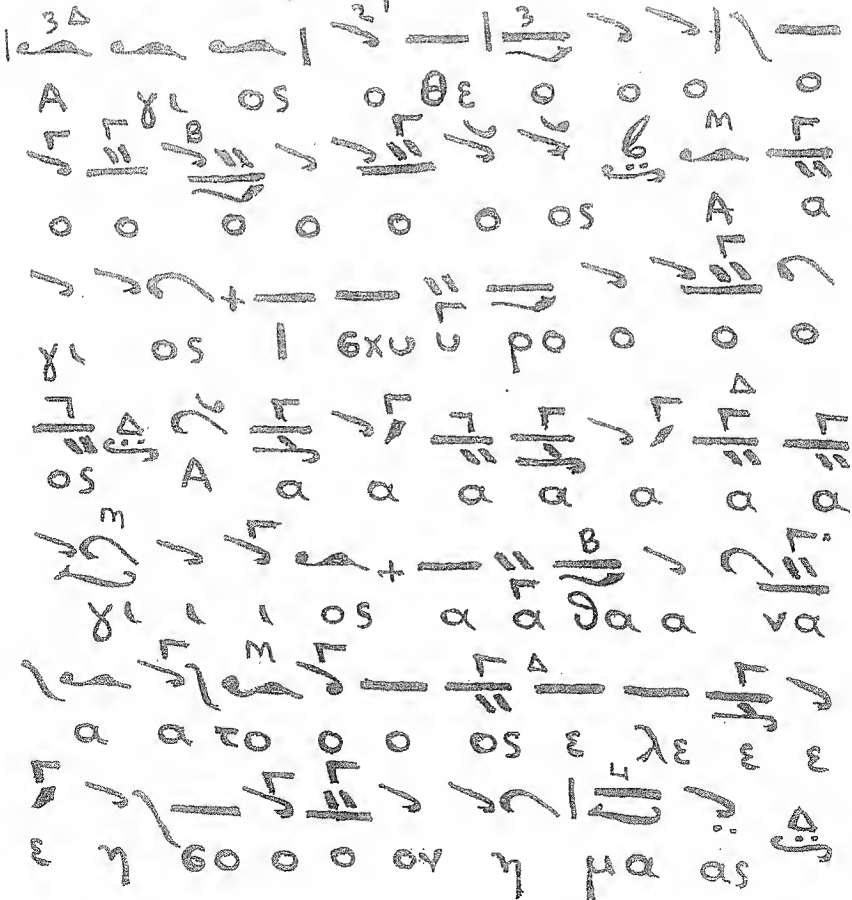 Α γι ος ο θε ο ο ο ο
ο ο ο ο ο ο ος Α α
γι ος ι σχυ υ ρο ο ο ο
ος Α α α α α α α α
γι ι ι ος α α θα α να
α α το ο ο ος ε λε ε ε
ε η σο ο ο ον η μα ας